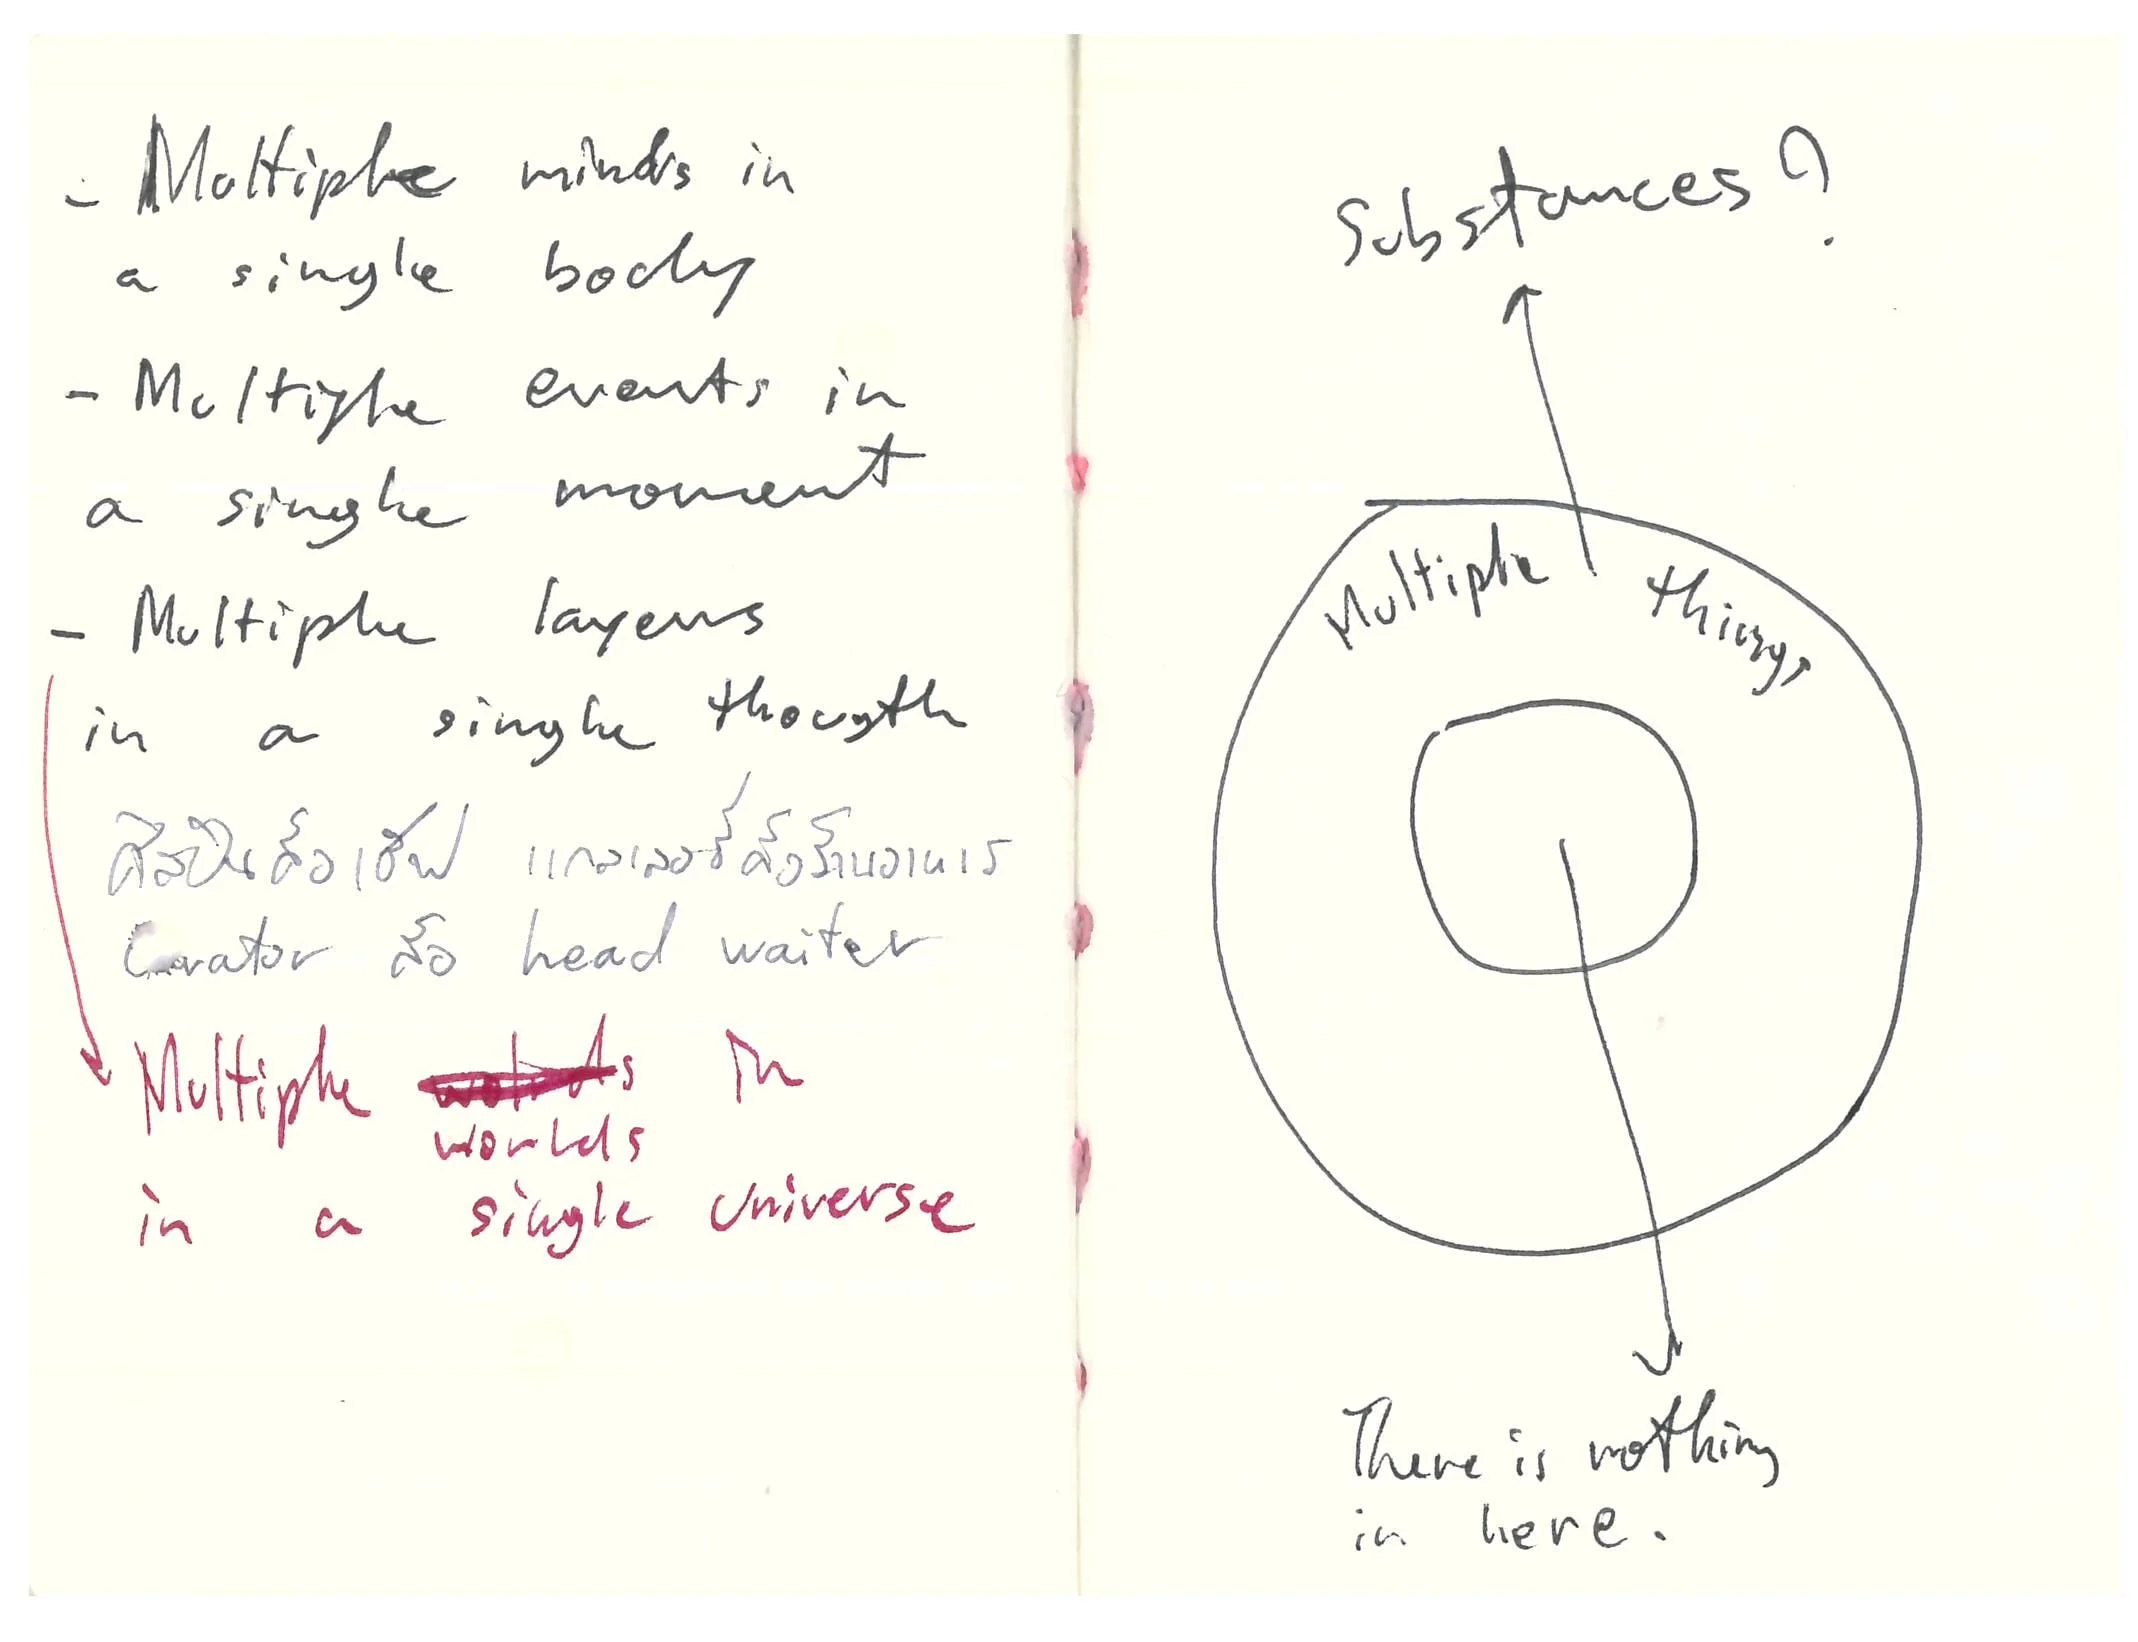 - Multiple minds in
a single body
- Multiple events in
a single moment
- Multiple layers
in a single thougth
ศิลปินคือเชฟ แกลเลอรี่คือร้านอาหาร
Curator คือ head waiter
Multiple in
worlds
in a single universe
Substances?
Multiple things
There is nothing
in here.